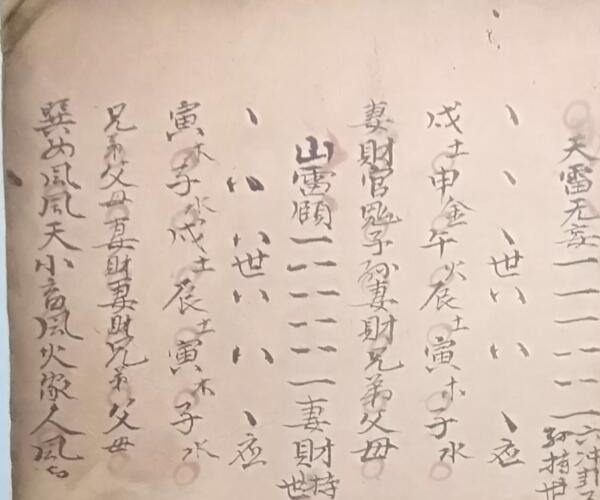 天雷无妄 六冲卦
孙持世
世 应
戌土申金午火辰土寅木子水
妻財官鬼子孙妻財兄弟父母
山雷頤 妻財持世
世 应
寅木子水戌土辰土寅木子水
兄弟父母妻財妻財兄弟父母
巽为風風天小畜風火家人風